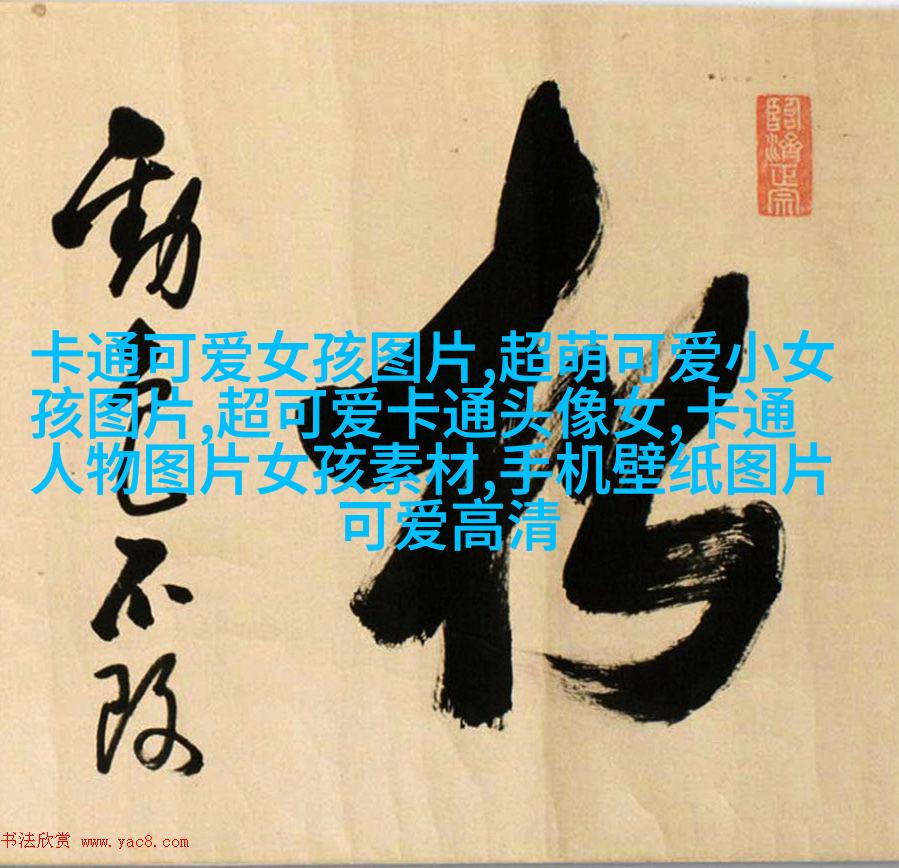 臨濟正宗
松
勁色不改
卡通可爱女孩图片,超萌可爱小女
孩图片,超可爱卡通头像女,卡通
人物图片女孩素材,手机壁纸图片
可爱高清
书法欣赏 www.yac8.com